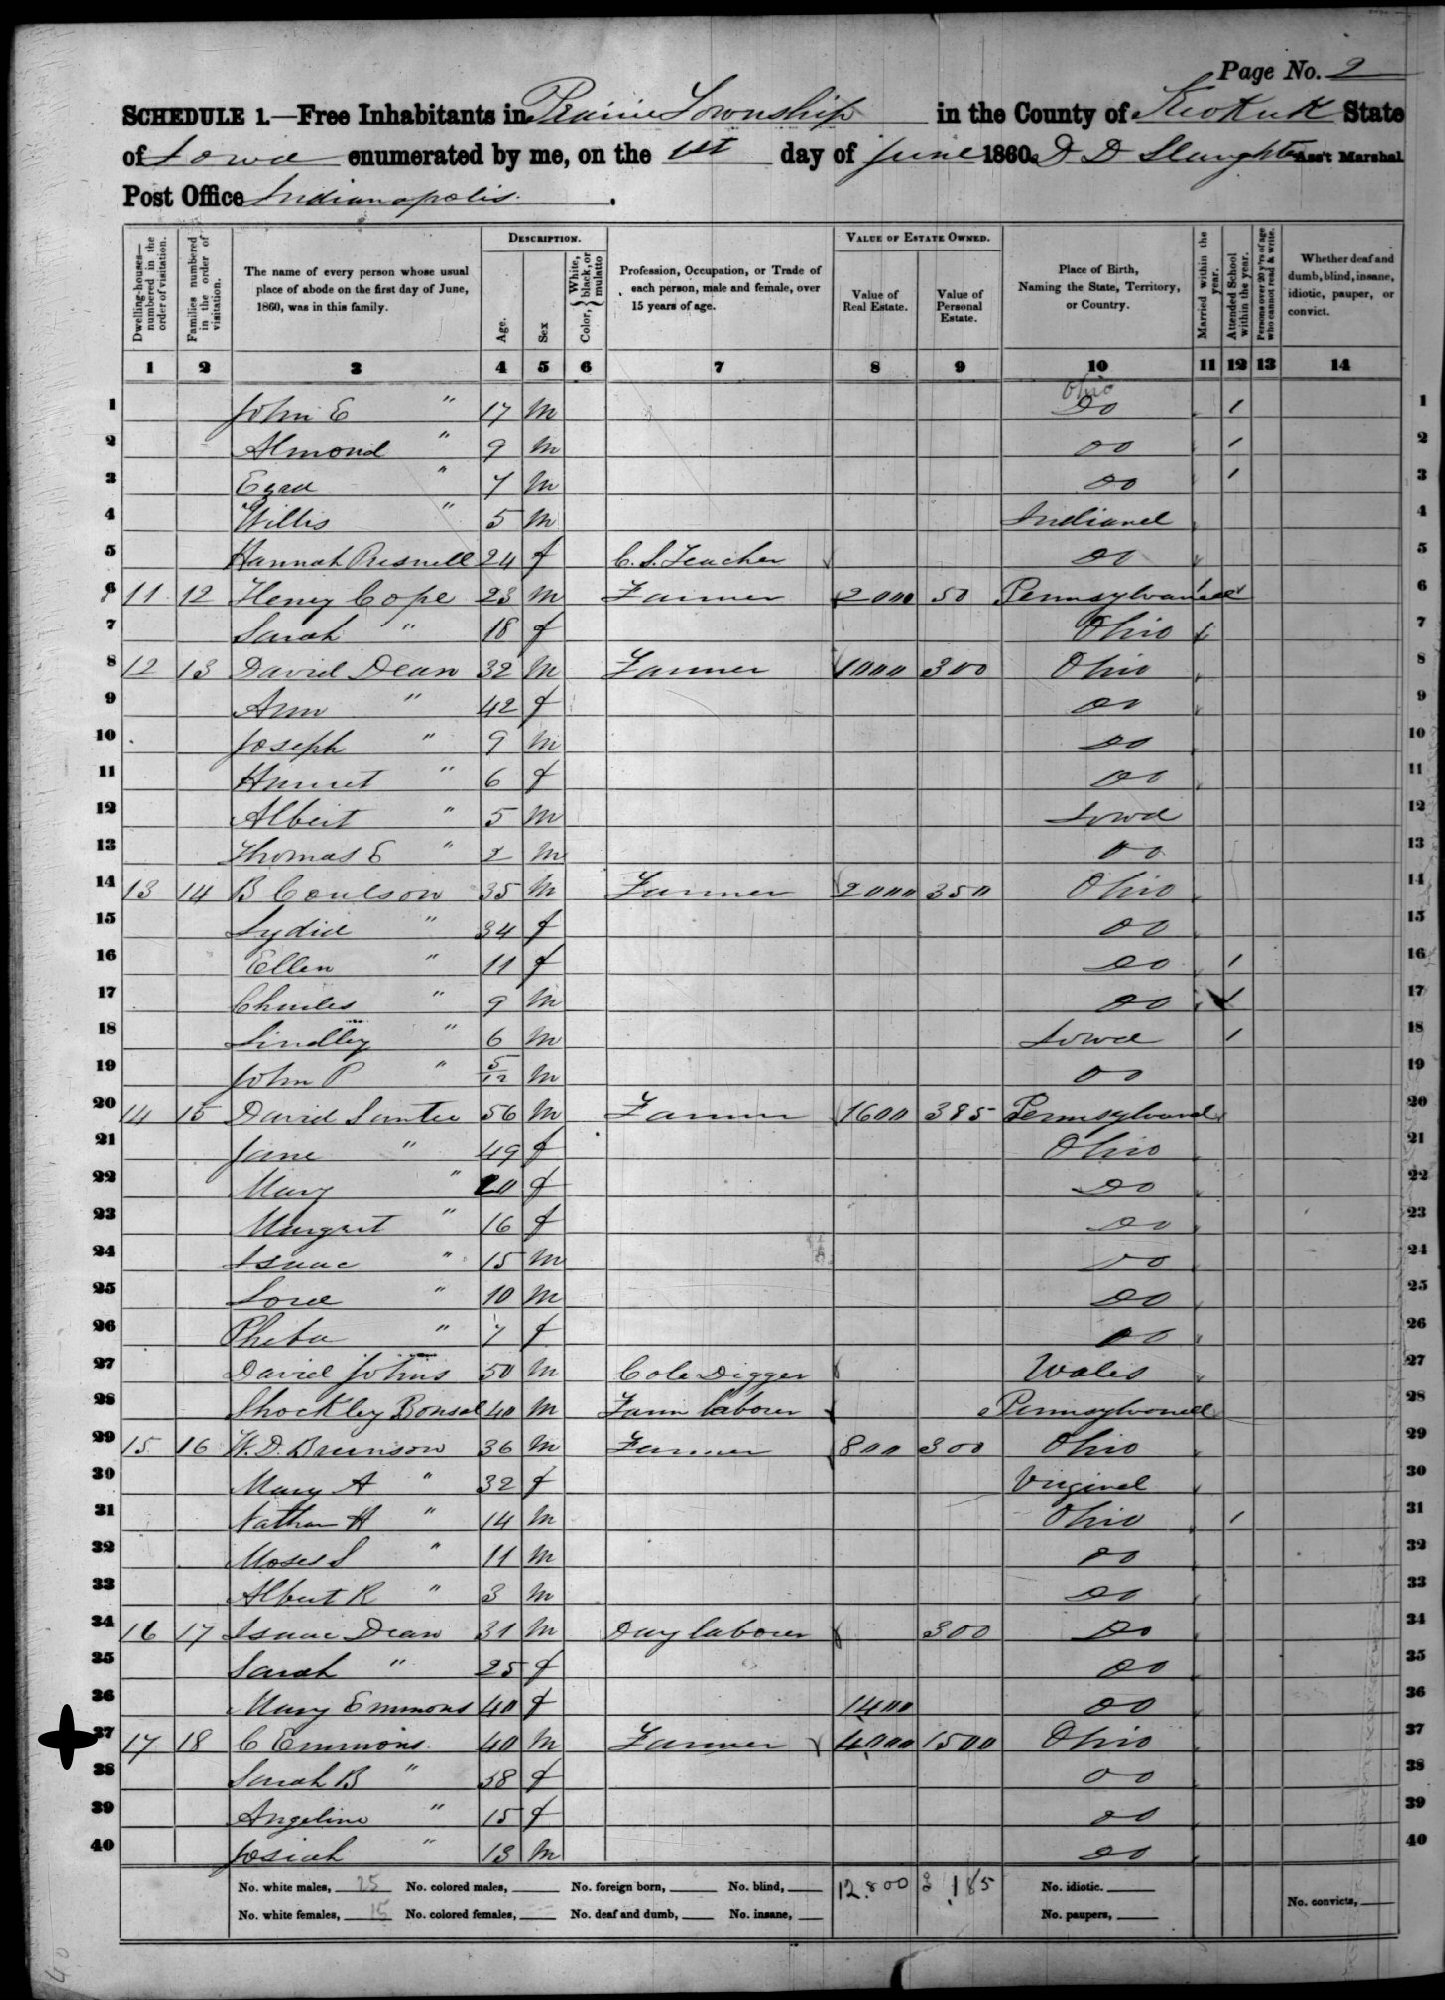 Page No. 2
SCHEDULE 1.—Free Inhabitants in Prairie Township in the County of Keokuk State
of Iowa enumerated by me, on the 1st day of June 1860. D D Slaughter Ass't Marshal
Post Office Indianapolis.
DESCRIPTION. VALUE OF ESTATE OWNED.
Dwelling-houses—numbered in the order of visitation. Families numbered in the order of visitation. The name of every person whose usual place of abode on the first day of June, 1860, was in this family. Age. Sex Color, White, black, or mulatto Profession, Occupation, or Trade of each person, male and female, over 15 years of age. Value of Real Estate. Value of Personal Estate. Place of Birth, Naming the State, Territory, or Country. Married within the year. Attended School within the year. Persons over 20 y'rs of age who cannot read & write. Whether deaf and dumb, blind, insane, idiotic, pauper, or convict.
1 2 3 4 5 6 7 8 9 10 11 12 13 14
Ohio
1 John E " 17 m Do / 1
2 Almond " 9 m Do / 2
3 " 7 m Do / 3
4 Willis " 5 m Indiana 4
5 Hannah Presnell 24 f C. S. Teacher Do 5
6 11 12 Henry Cope 23 m Farmer 2000 50 Pennsylvania 6
7 Sarah " 18 f Ohio / 7
8 12 13 David Dean 32 m Farmer 1000 300 Ohio 8
9 Ann " 42 f Do 9
10 Joseph " 9 m Do 10
11 Harriet " 6 f Do 11
12 Albert " 5 m Iowa 12
13 Thomas E " 2 m Do 13
14 13 14 B Coulson 35 m Farmer 2000 350 Ohio 14
15 Lydia " 34 f Do 15
16 Ellen " 11 f Do / 16
17 Charles " 9 m Do / 17
18 Lindley " 6 m Iowa / 18
19 John P " 5/12 m Do 19
20 14 15 David Santee 56 m Farmer 1600 385 Pennsylvania 20
21 Jane " 49 f Ohio 21
22 Mary " 20 f Do 22
23 Margret " 16 f Do 23
24 Isaac " 15 m Do 24
25 " 10 m Do 25
26 Pheba " 7 f Do 26
27 David Johns 50 m Cole Digger Wales 27
28 Shockley Bonsal 40 m Farm laborer Pennsylvania 28
29 15 16 W. D. Brunson 36 m Farmer 800 300 Ohio 29
30 Mary A " 32 f Virginia 30
31 Nathan H " 14 m Ohio / 31
32 Moses S " 11 m Do 32
33 Albert R " 3 m Do 33
34 16 17 Isaac Dean 31 m Day laborer 300 Do 34
35 Sarah " 25 f Do 35
36 Mary Emmons 40 f 1400 Do 36
37 17 18 C Emmons 40 m Farmer 4000 1500 Ohio 37
38 Sarah B " 38 f Do 38
39 Angeline " 15 f Do 39
40 Josiah " 13 m Do 40
No. white males, 25 No. colored males, No. foreign born, No. blind, 12.800 3,185 No. idiotic.
No. white females, 15 No. colored females, No. deaf and dumb, No. insane, No. paupers, No. convicts,
40